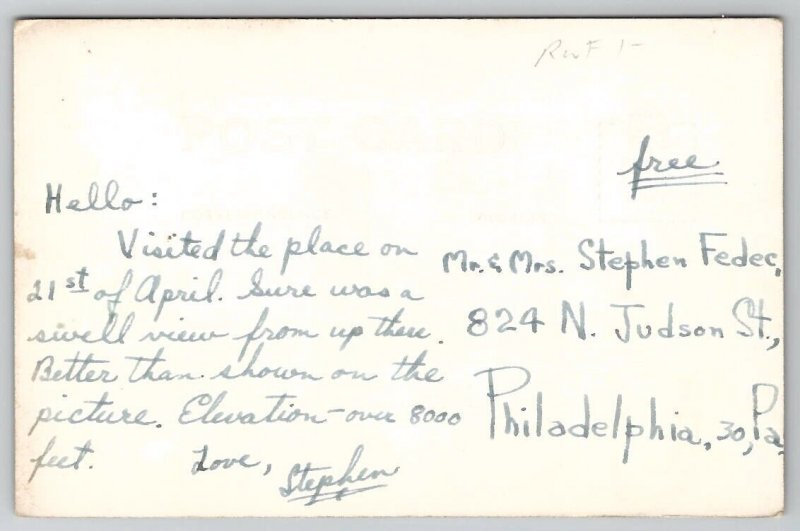 RWF 1-
free
Hello:
Visited the place on
21st of April. Sure was a
swell view from up there.
Better than shown on the
picture. Elevation - over 8000
feet.
Love,
Stephen
Mr. & Mrs. Stephen Fedec,
824 N. Judson St.,
Philadelphia, 30, Pa.
POST CARD
CORRESPONDENCE